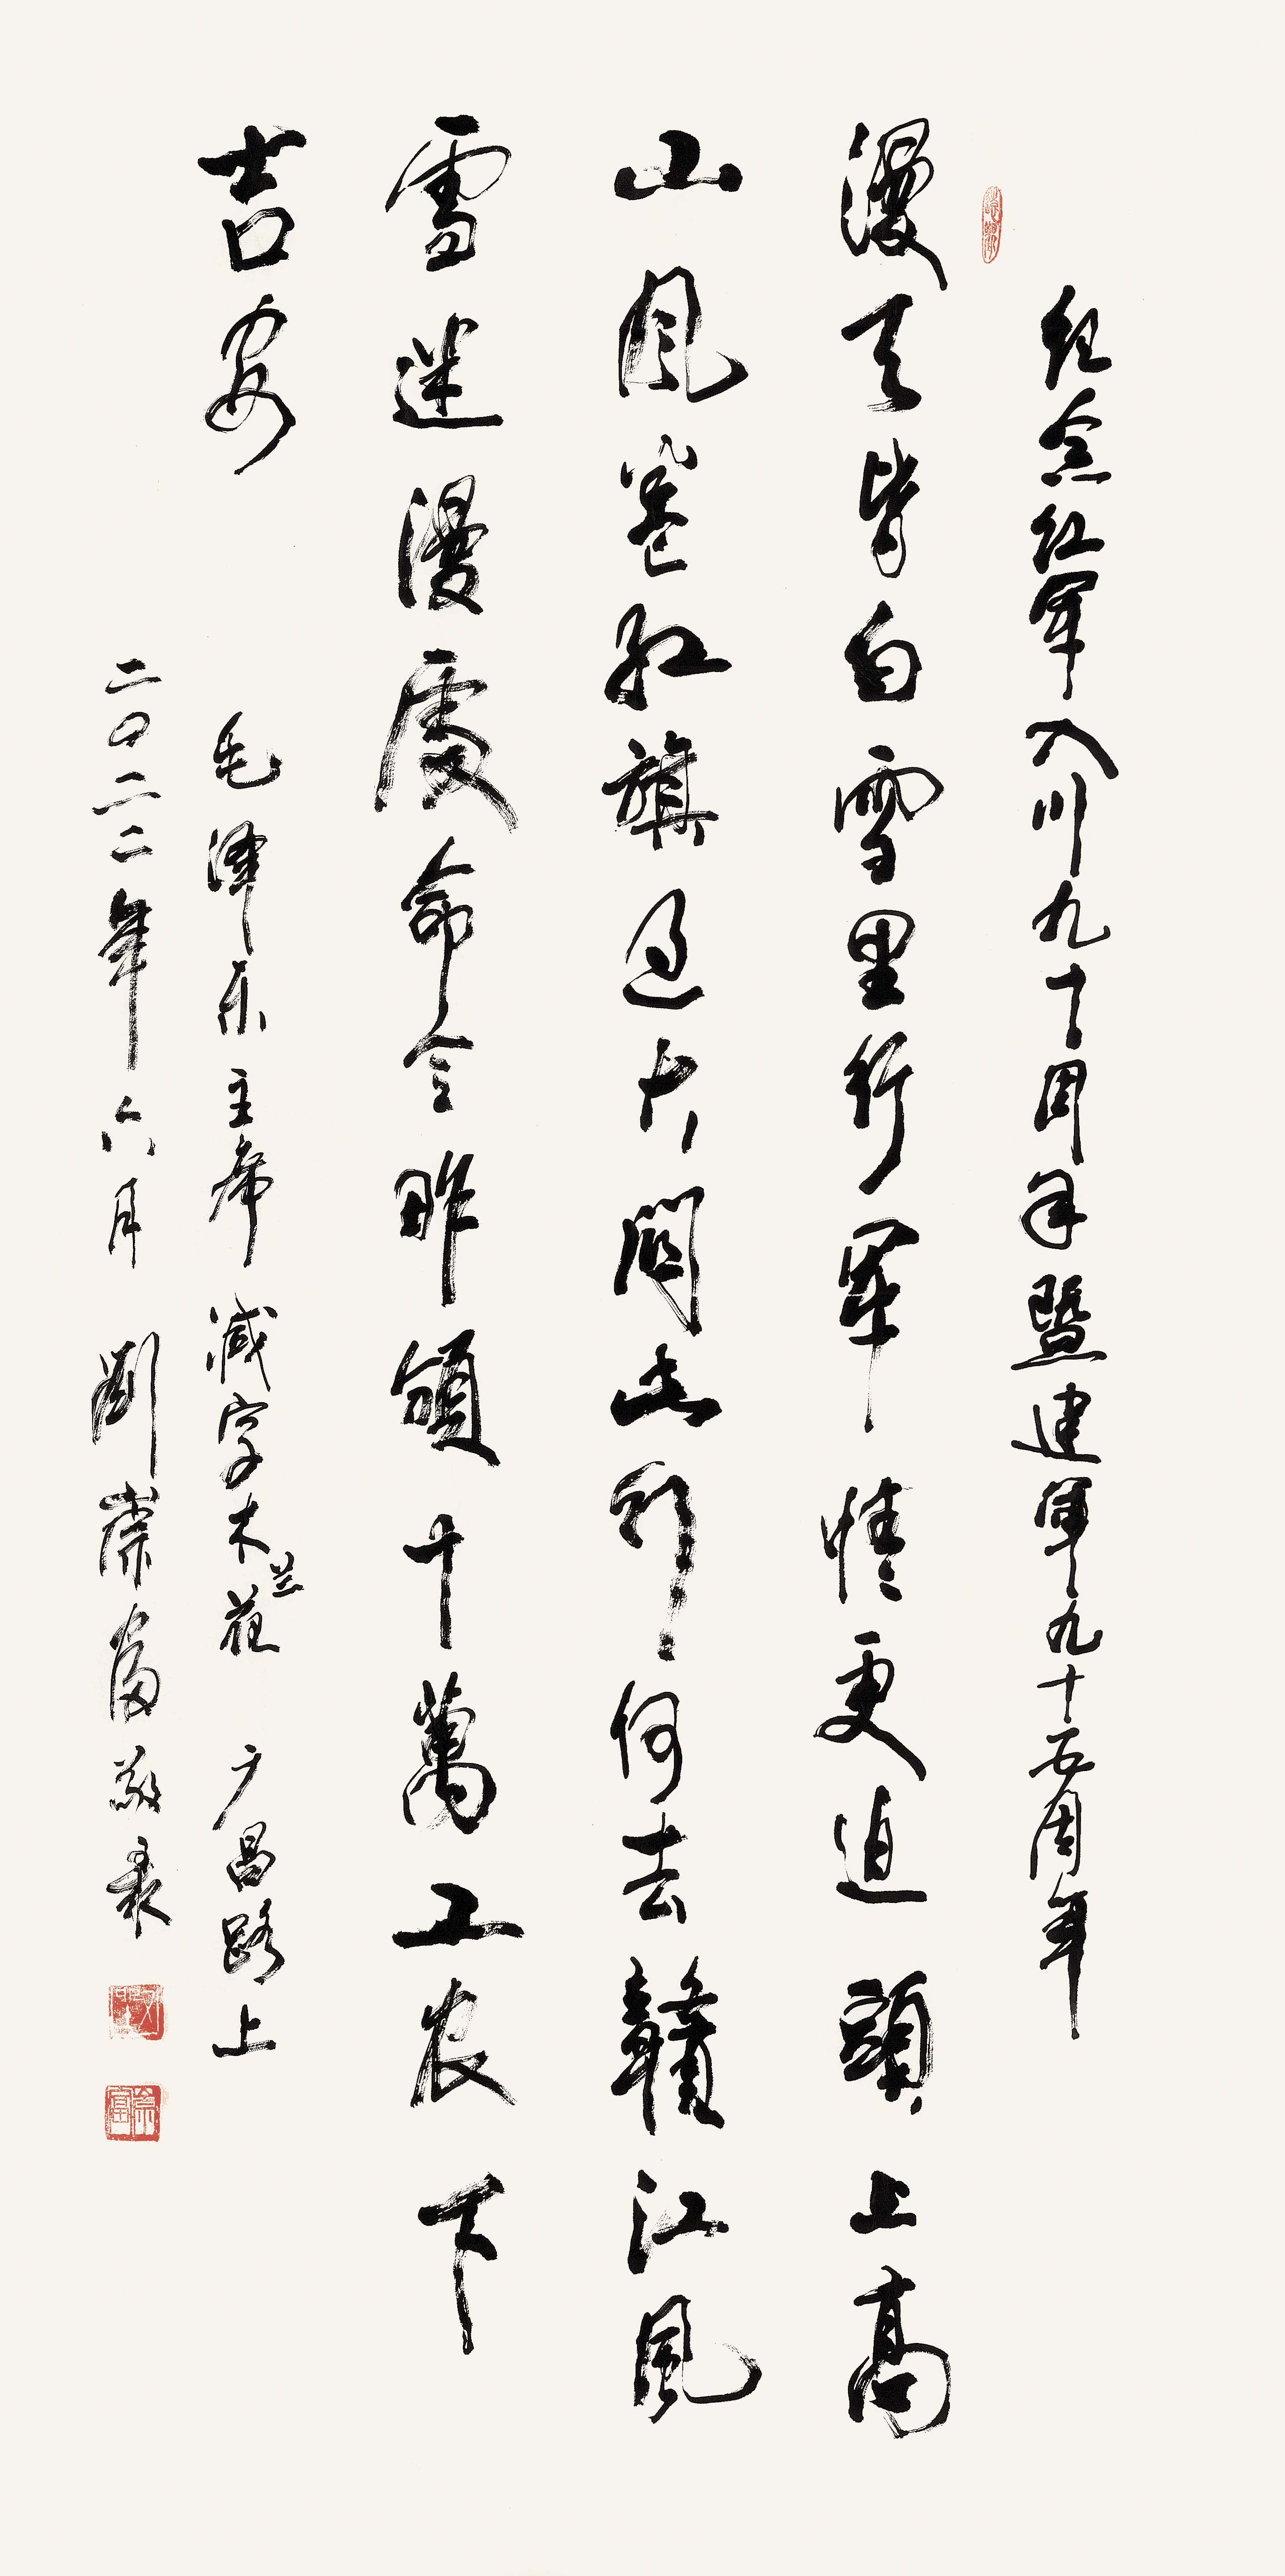 纪念红軍入川九十周年暨建軍九十五周年
漫天皆白雪里行軍情更迫頭上高
山風卷红旗过大關此行何去贛江風
雪迷漫處命令昨頒十萬工农下
吉安 毛泽东主席 减字木兰花 广昌路上
二〇二二年六月 劉崇富敬录
崇富